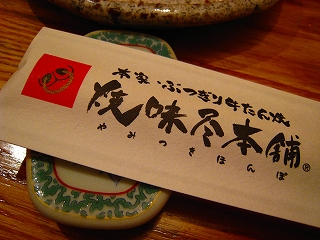 本家・ぶつぎり牛たん焼
焼味尽本舗®
やみつきほんぽ